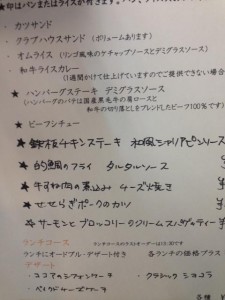 ★印はパンまたはライスが付きます。
・ カツサンド
・ クラブハウスサンド (ボリュームあります)
・ オムライス (リンゴ風味のケチャップソースとデミグラスソース)
・ 和牛ライスカレー
(1週間かけて仕上げていますのでご提供できない場合
★ ハンバーグステーキ デミグラスソース
(ハンバーグのパテは国産黒毛牛の肩ロースと
和牛の切り落としをブレンドしたビーフ100%です)
★ ビーフシチュー
★ 鉄板チキンステーキ 和風シャリアピンソース
★ 的鯛のフライ タルタルソース
★ 牛すね肉の煮込み チーズ焼き
★ せせらぎポークのカツ
★ サーモンとブロッコリーのクリームスパゲッティー
ランチコース ランチコースのラストオーダーは
ランチにオードブル・デザート付き 各ランチの価格プラス
デザート
・ ココアのシフォンケーキ ・ クラシック ショコラ
・ ベイクドチーズケーキ